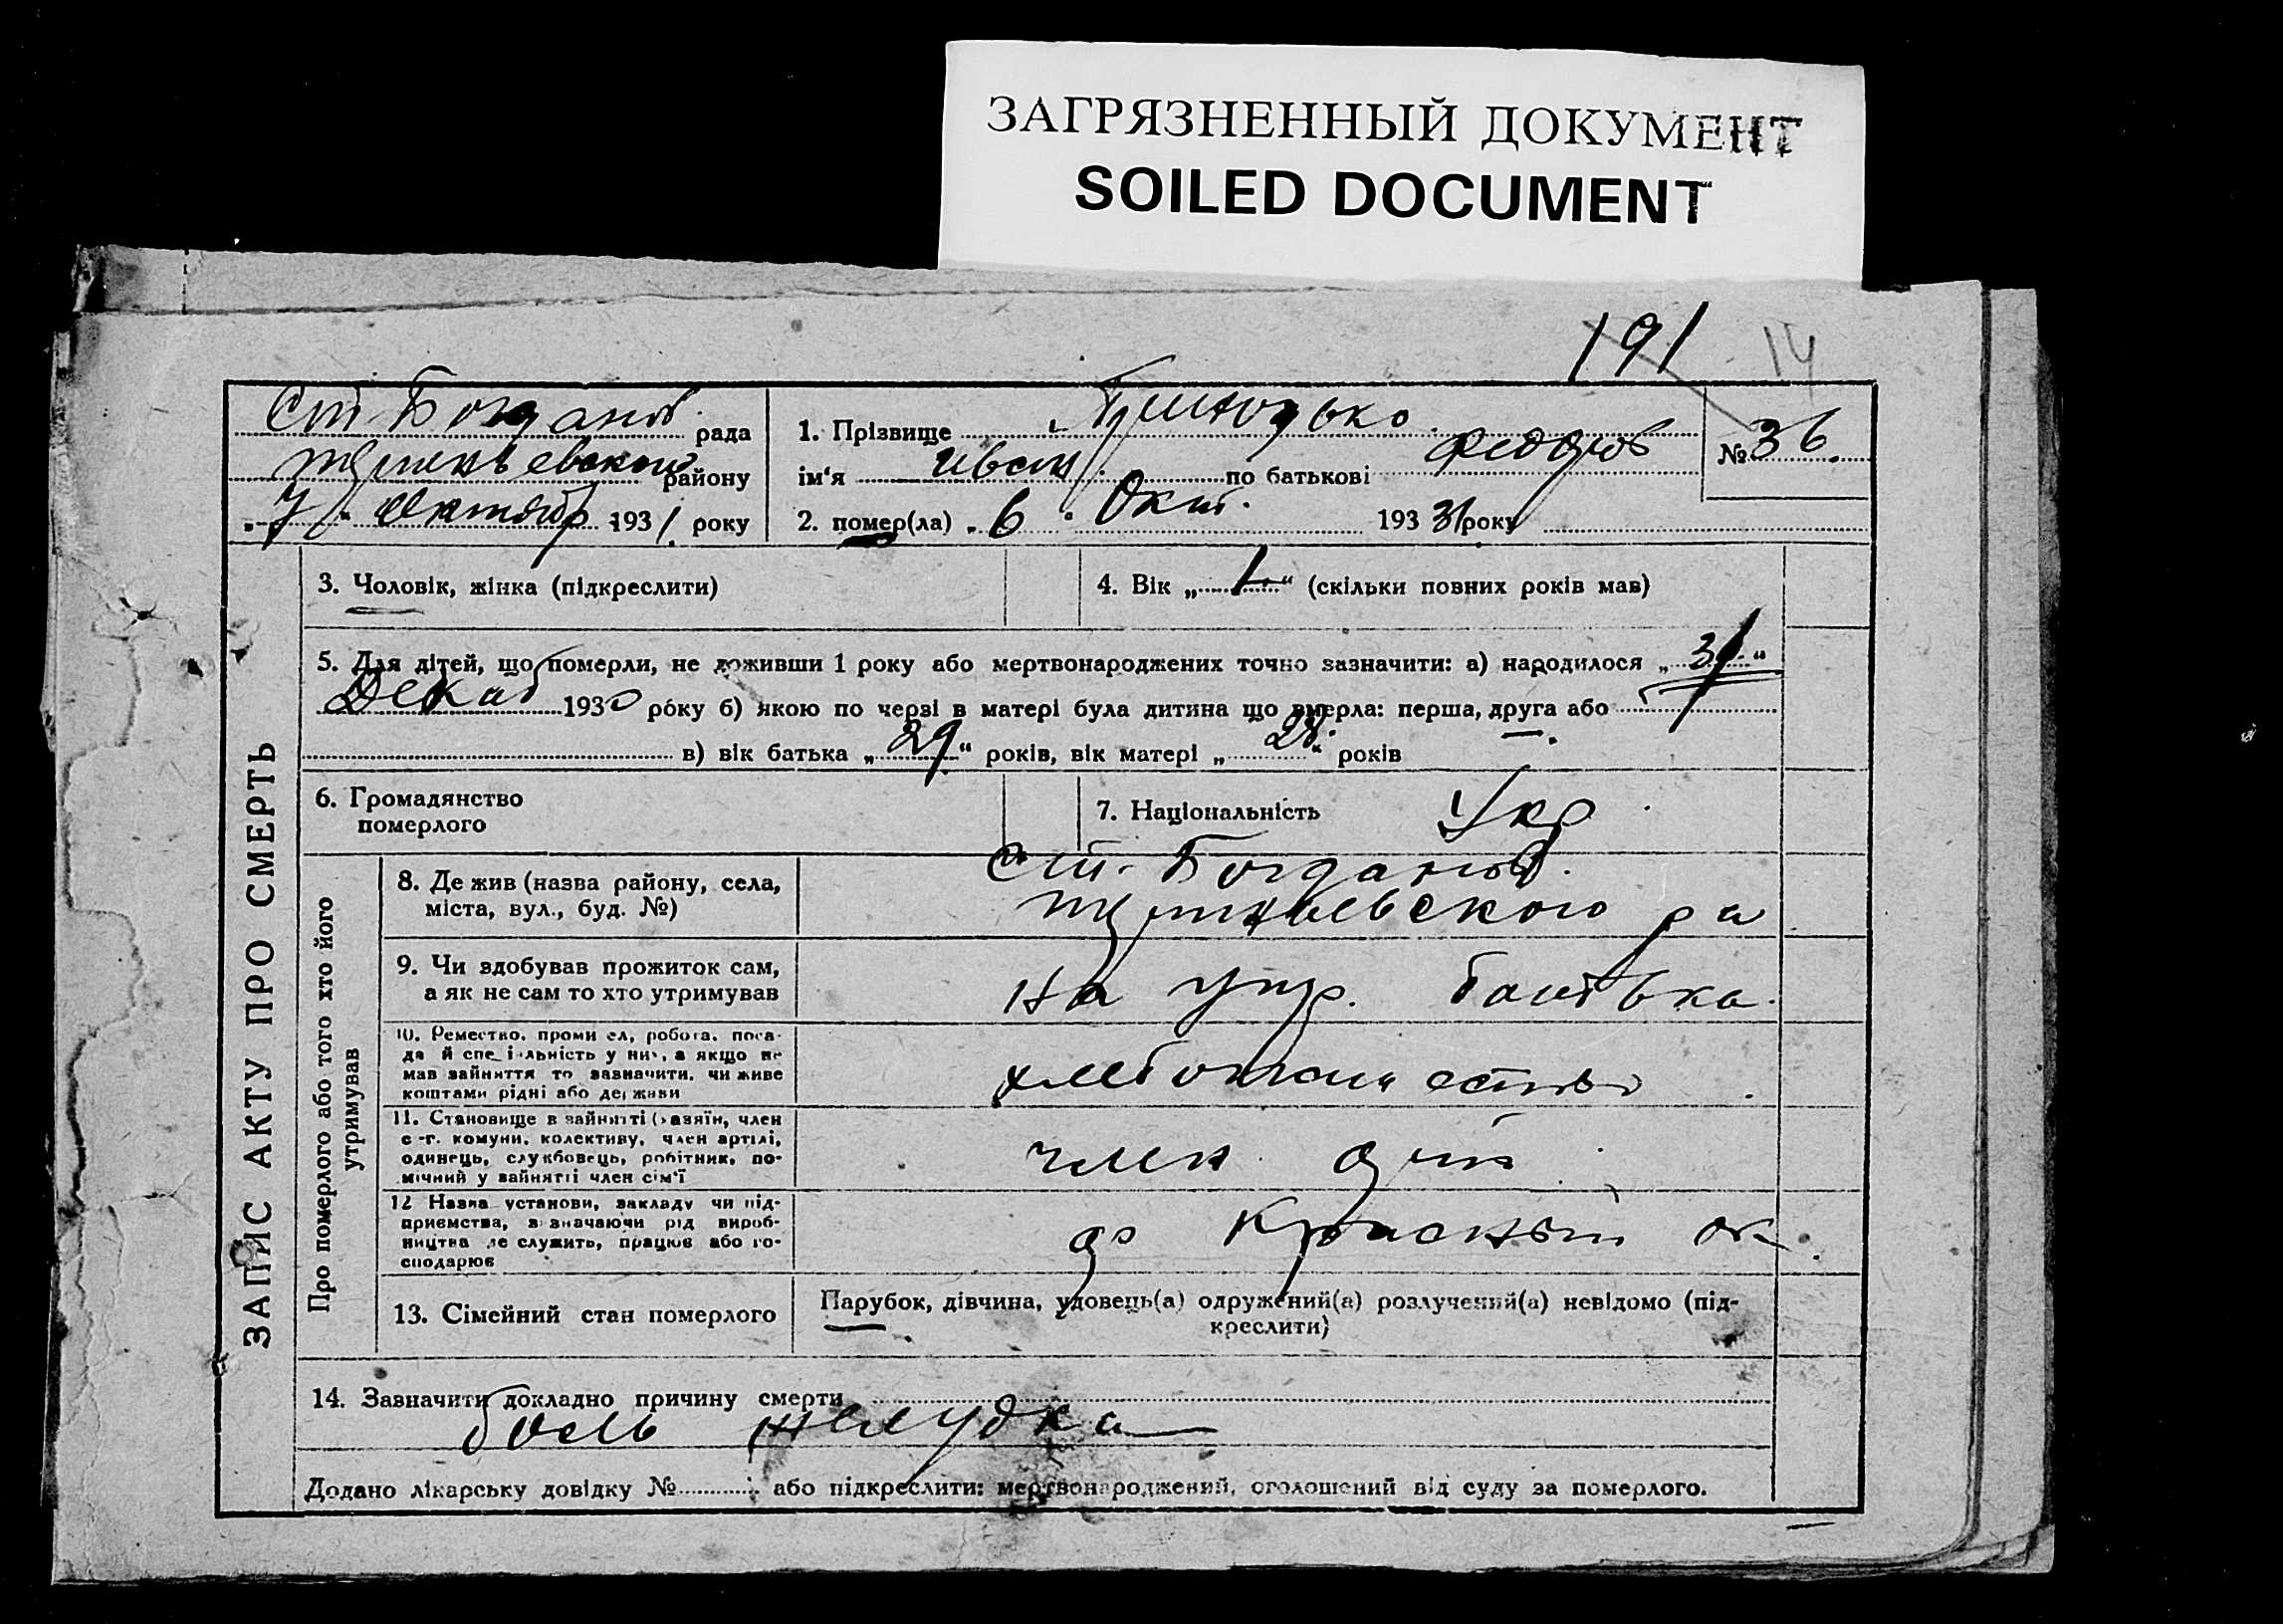 ЗАГРЯЗНЕННЫЙ ДОКУМЕНТ
SOILED DOCUMENT
191 14
Ст-Богданов. рада
району
"7" Октябр 1931. року
1. Прізвище
ім'я Иван по батькові Федоров
№ 36.
2. помер(ла) "6" Окт. 193 31 року
ЗАПИС АКТУ ПРО СМЕРТЬ
3. Чоловік, жінка (підкреслити)
4. Вік „ 1 “ (скільки повних років мав)
5. Для дітей, що померли, не доживши 1 року або мертвонароджених точно зазначити: а) народилося „ 31 “
Декаб 1930 року б) якою по черзі в матері була дитина що вмерла: перша, друга або
в) вік батька „ 29 “ років, вік матері „ 28 “ років
6. Громадянство
померлого
7. Національність Укр
Про померлого або того хто його
утримував
8. Де жив (назва району, села,
міста, вул., буд. №)
Ст-Богданов.
ра
9. Чи здобував прожиток сам,
а як не сам то хто утримував
на утр. батька.
10. Ремество, промисел, робота, поса-
да й спеціальність у них, а якщо не
мав зайняття то зазначити, чи живе
коштами рідні або держави
11. Становище в зайнятті (хазяїн, член
с.-г. комуни, колективу, член артілі,
одинець, службовець, робітник, по-
мічний у зайнятті член сім'ї
член
12 Назва установи, закладу чи під-
приємства, зазначаючи рід вироб-
ництва де служить, працює або го-
сподарює
Красный ок.
13. Сімейний стан померлого
Парубок, дівчина, удовець(а) одружений(а) розлучений(а) невідомо (під-
креслити)
14. Зазначити докладно причину смерти
боль желудка
Додано лікарську довідку № або підкреслити: мертвонароджений, оголошений від суду за померлого.